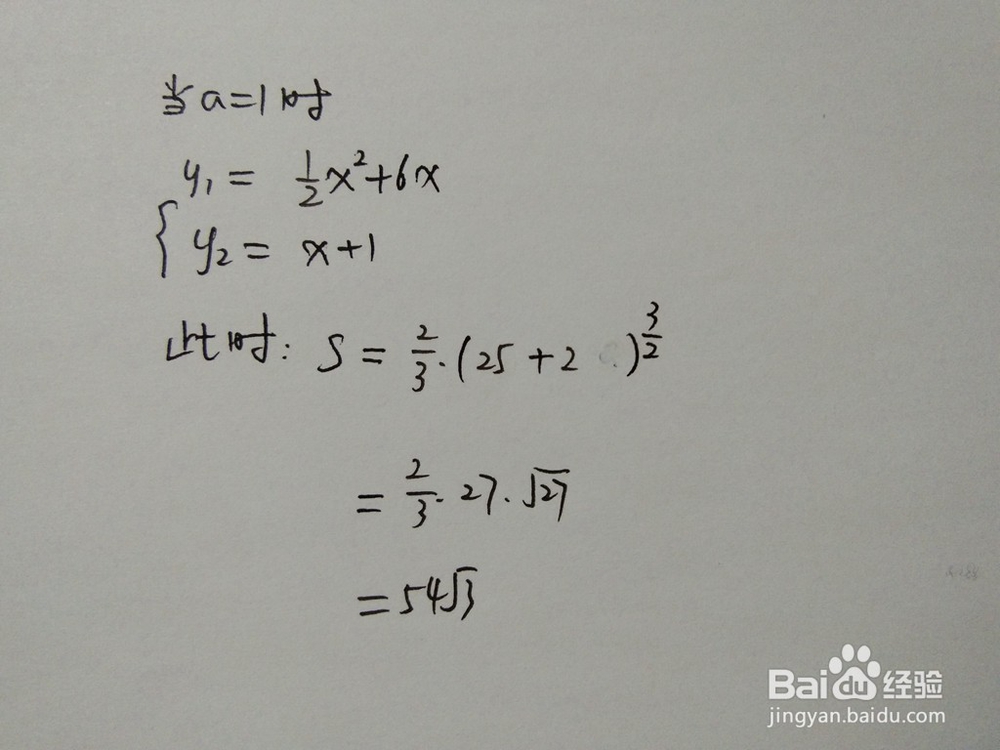 当a=1时
y₁ = ½x²+6x
{ y₂ = x+1
此时: S = 2/3·(25+2 )^(3/2)
= 2/3·27·√27
= 54√3
Baidu经验
jingyan.baidu.com